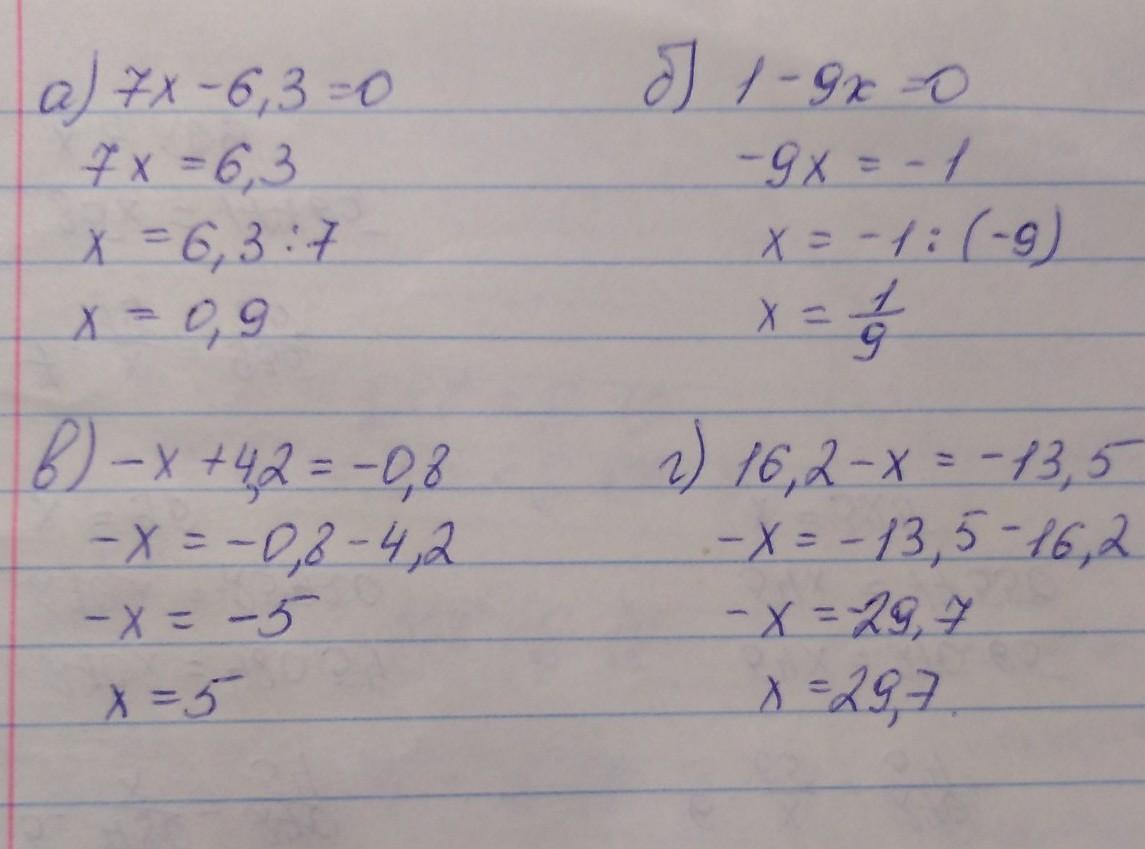 а) 7x - 6,3 = 0
7x = 6,3
x = 6,3 : 7
x = 0,9
б) 1 - 9x = 0
-9x = -1
x = -1 : (-9)
x = 1/9
в) -x + 4,2 = -0,8
-x = -0,8 - 4,2
-x = -5
x = 5
г) 16,2 - x = -13,5
-x = -13,5 - 16,2
-x = -29,7
x = 29,7.